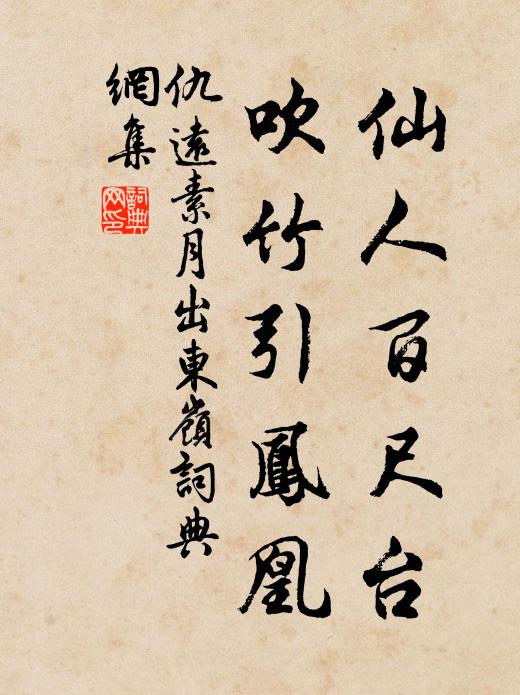 仙人百尺台
吹竹引鳳凰
仇遠素月出東嶺詞典
網集
詞典網印